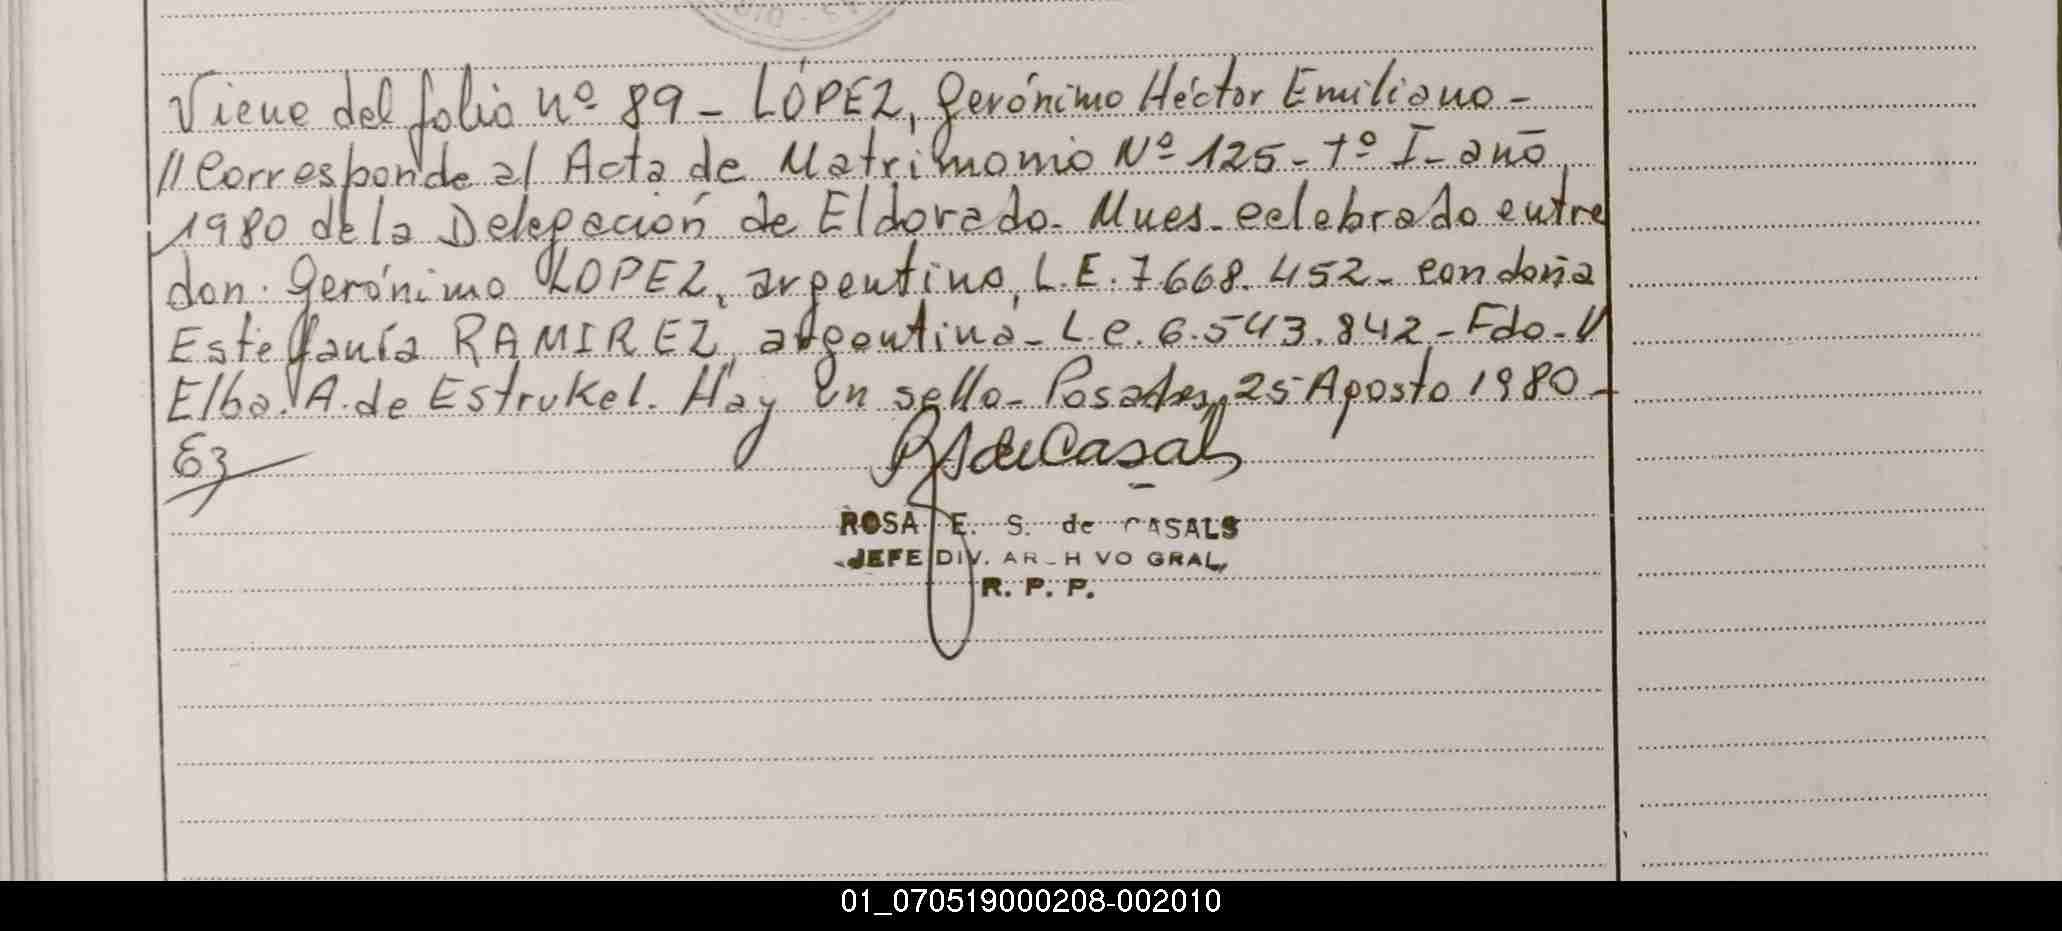 Viene del folio nº 89 - LÓPEZ, Gerónimo Héctor Emiliano -
// Corresponde al Acta de Matrimonio Nº 125 - tº I - año
1980 de la Delegación de Eldorado - Mnes - celebrado entre
don Gerónimo LOPEZ, argentino, L.E. 7.668.452 - con doña
Estefanía RAMIREZ, argentina - L.C. 6.543.842 - Fdo -
Elba. A. de Estrukel. Hay un sello - Posadas, 25 Agosto 1980 -
ROSA E. S. de CASALS
JEFE DIV. AR_H VO GRAL,
R. P. P.
01_070519000208-002010